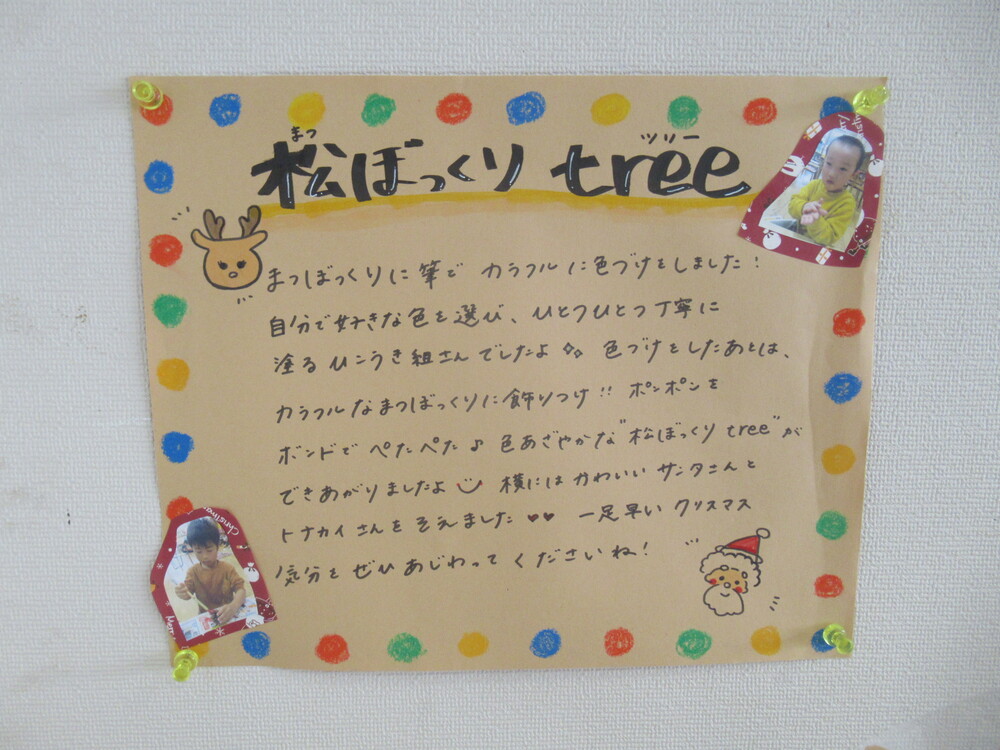 まつ ツリー
松ぼっくり tree
まつぼっくりに筆で カラフルに色づけをしました！
自分で好きな色を選び、ひとつひとつ丁寧に
塗るひこうき組さんでしたよ 色づけをしたあとは、
カラフルなまつぼっくりに飾りつけ!! ポンポンを
ボンドで ぺたぺた♪ 色あざやかな"松ぼっくりtree"が
できあがりましたよ 横にはかわいいサンタさんと
トナカイさんをそえました♥♥ 一足早いクリスマス
気分を ぜひあじわってくださいね！
Christmas